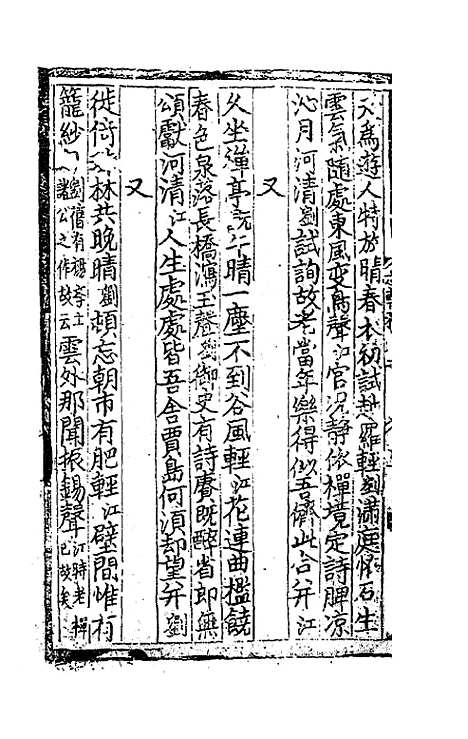 天為遊人特放晴春衣初試越羅輕劉滿庭怪石生
雲氣隨處東風变鳥聲江官况静依禪境定詩脾凉
沁月河清劉試詢故老當年樂得似吾儕此合并江
又
久坐禪亭説午晴一塵不到谷風輕江花連曲檻饒
春色泉落長橋瀉玉聲劉御史有詩賡既醉省郎無
頌獻河清江人生處處皆吾舍賈島何須却望并劉
又
徙倚林共晚晴劉頓忘朝市有肥輕江壁間惟有
籠紗劉舊有亭立諸公之作故云雲外那聞振錫聲江特老已故矣禪